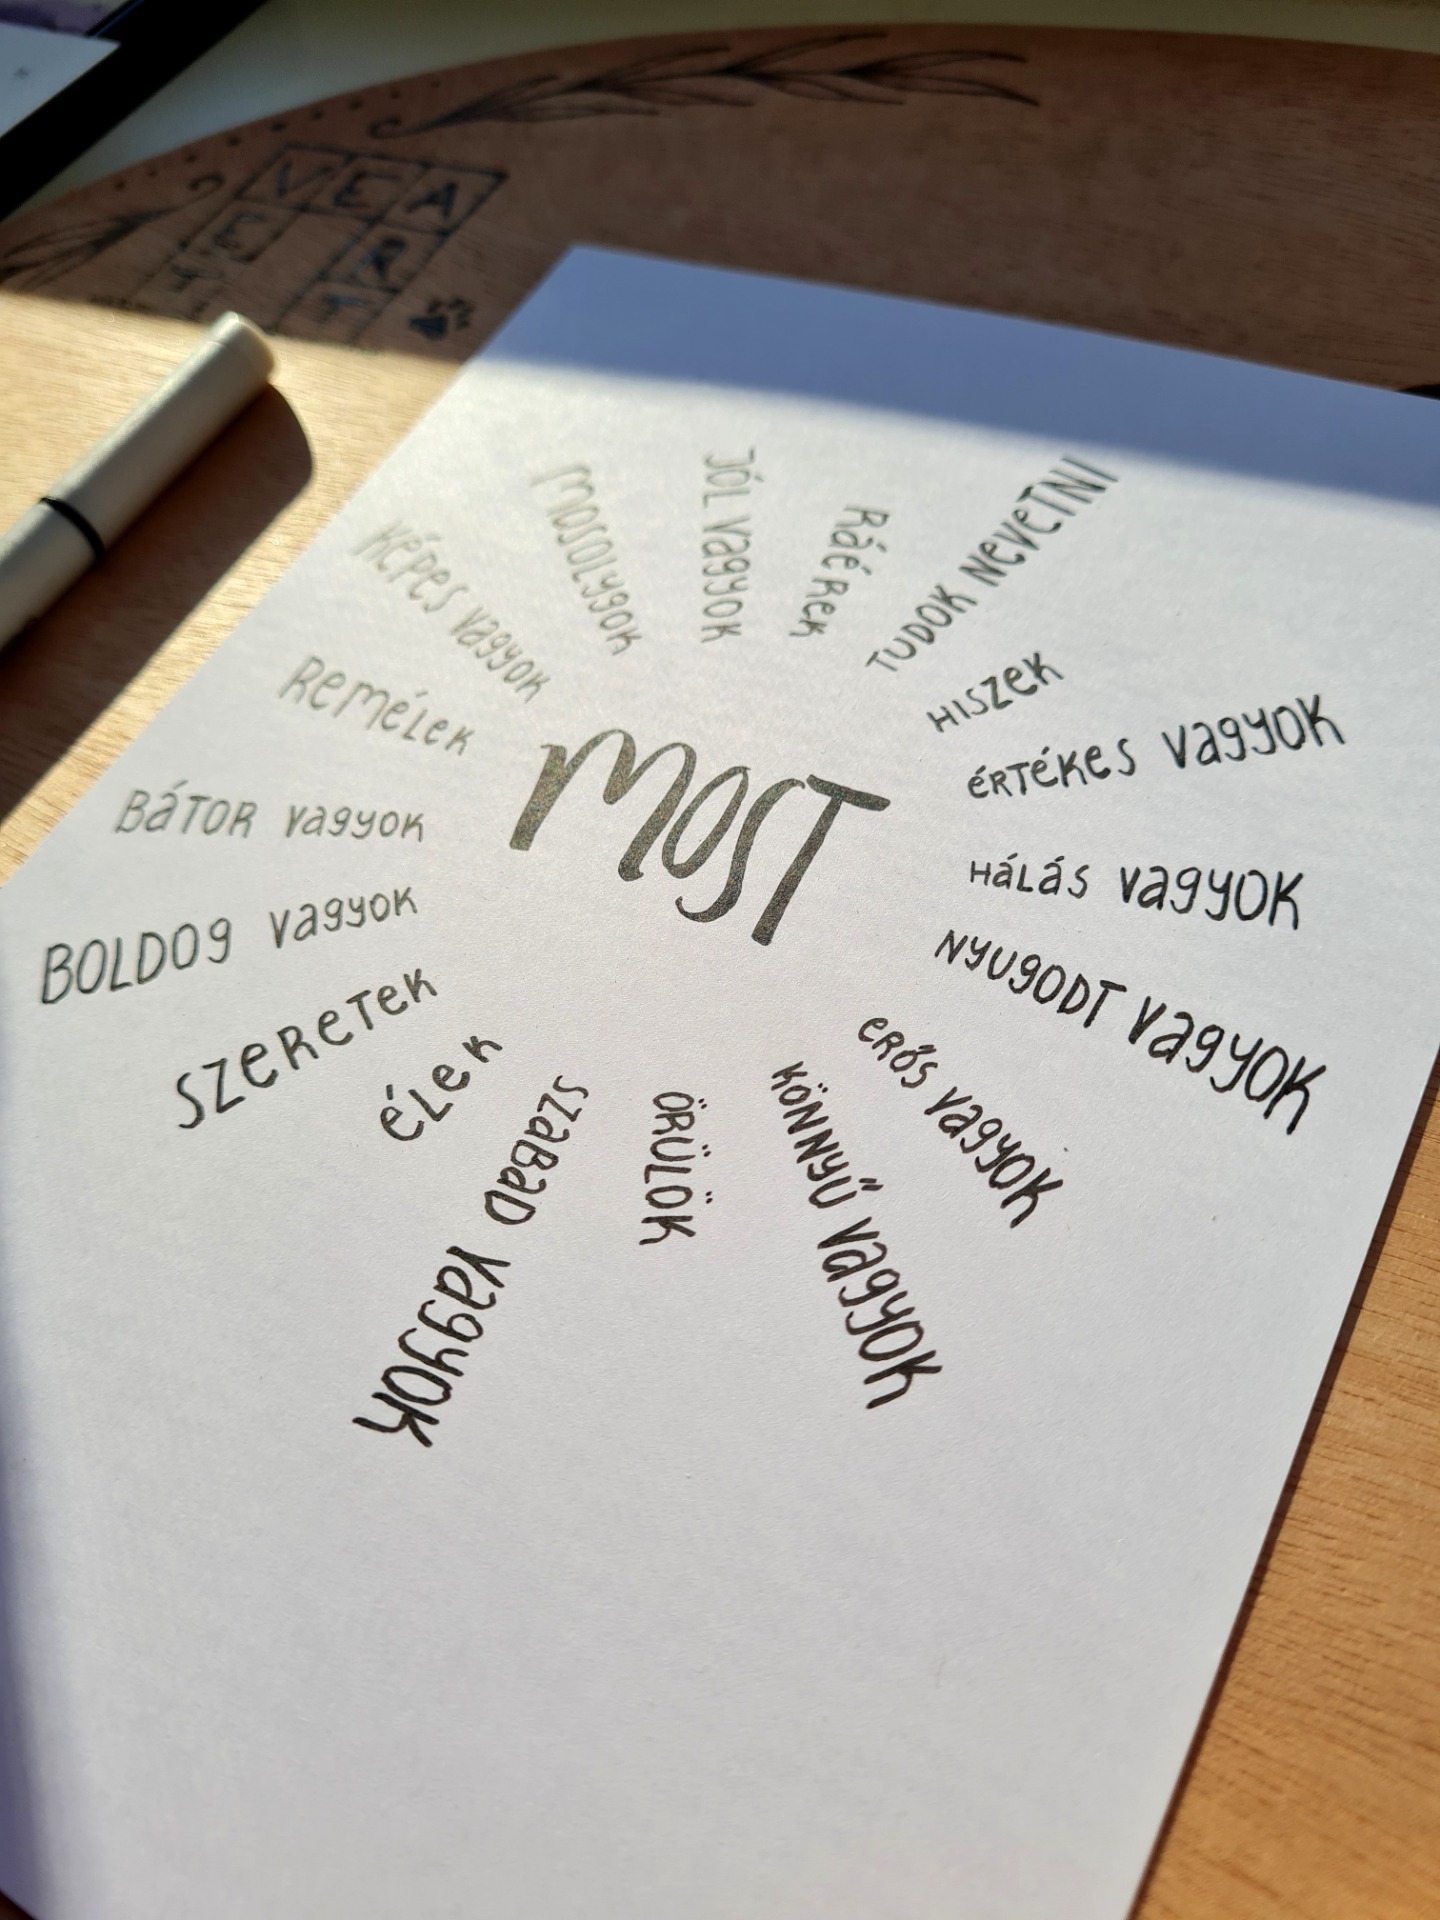 VEA
ER
T
MOST
JÓL VAGYOK
RÁÉREK
TUDOK NEVETNI
HISZEK
ÉRTÉKES VAGYOK
HÁLÁS VAGYOK
NYUGODT VAGYOK
ERŐS VAGYOK
KÖNNYŰ VAGYOK
ÖRÜLÖK
SZABAD VAGYOK
ÉLEK
SZERETEK
BOLDOG VAGYOK
BÁTOR VAGYOK
REMÉLEK
KÉPES VAGYOK
MOSOLYGOK